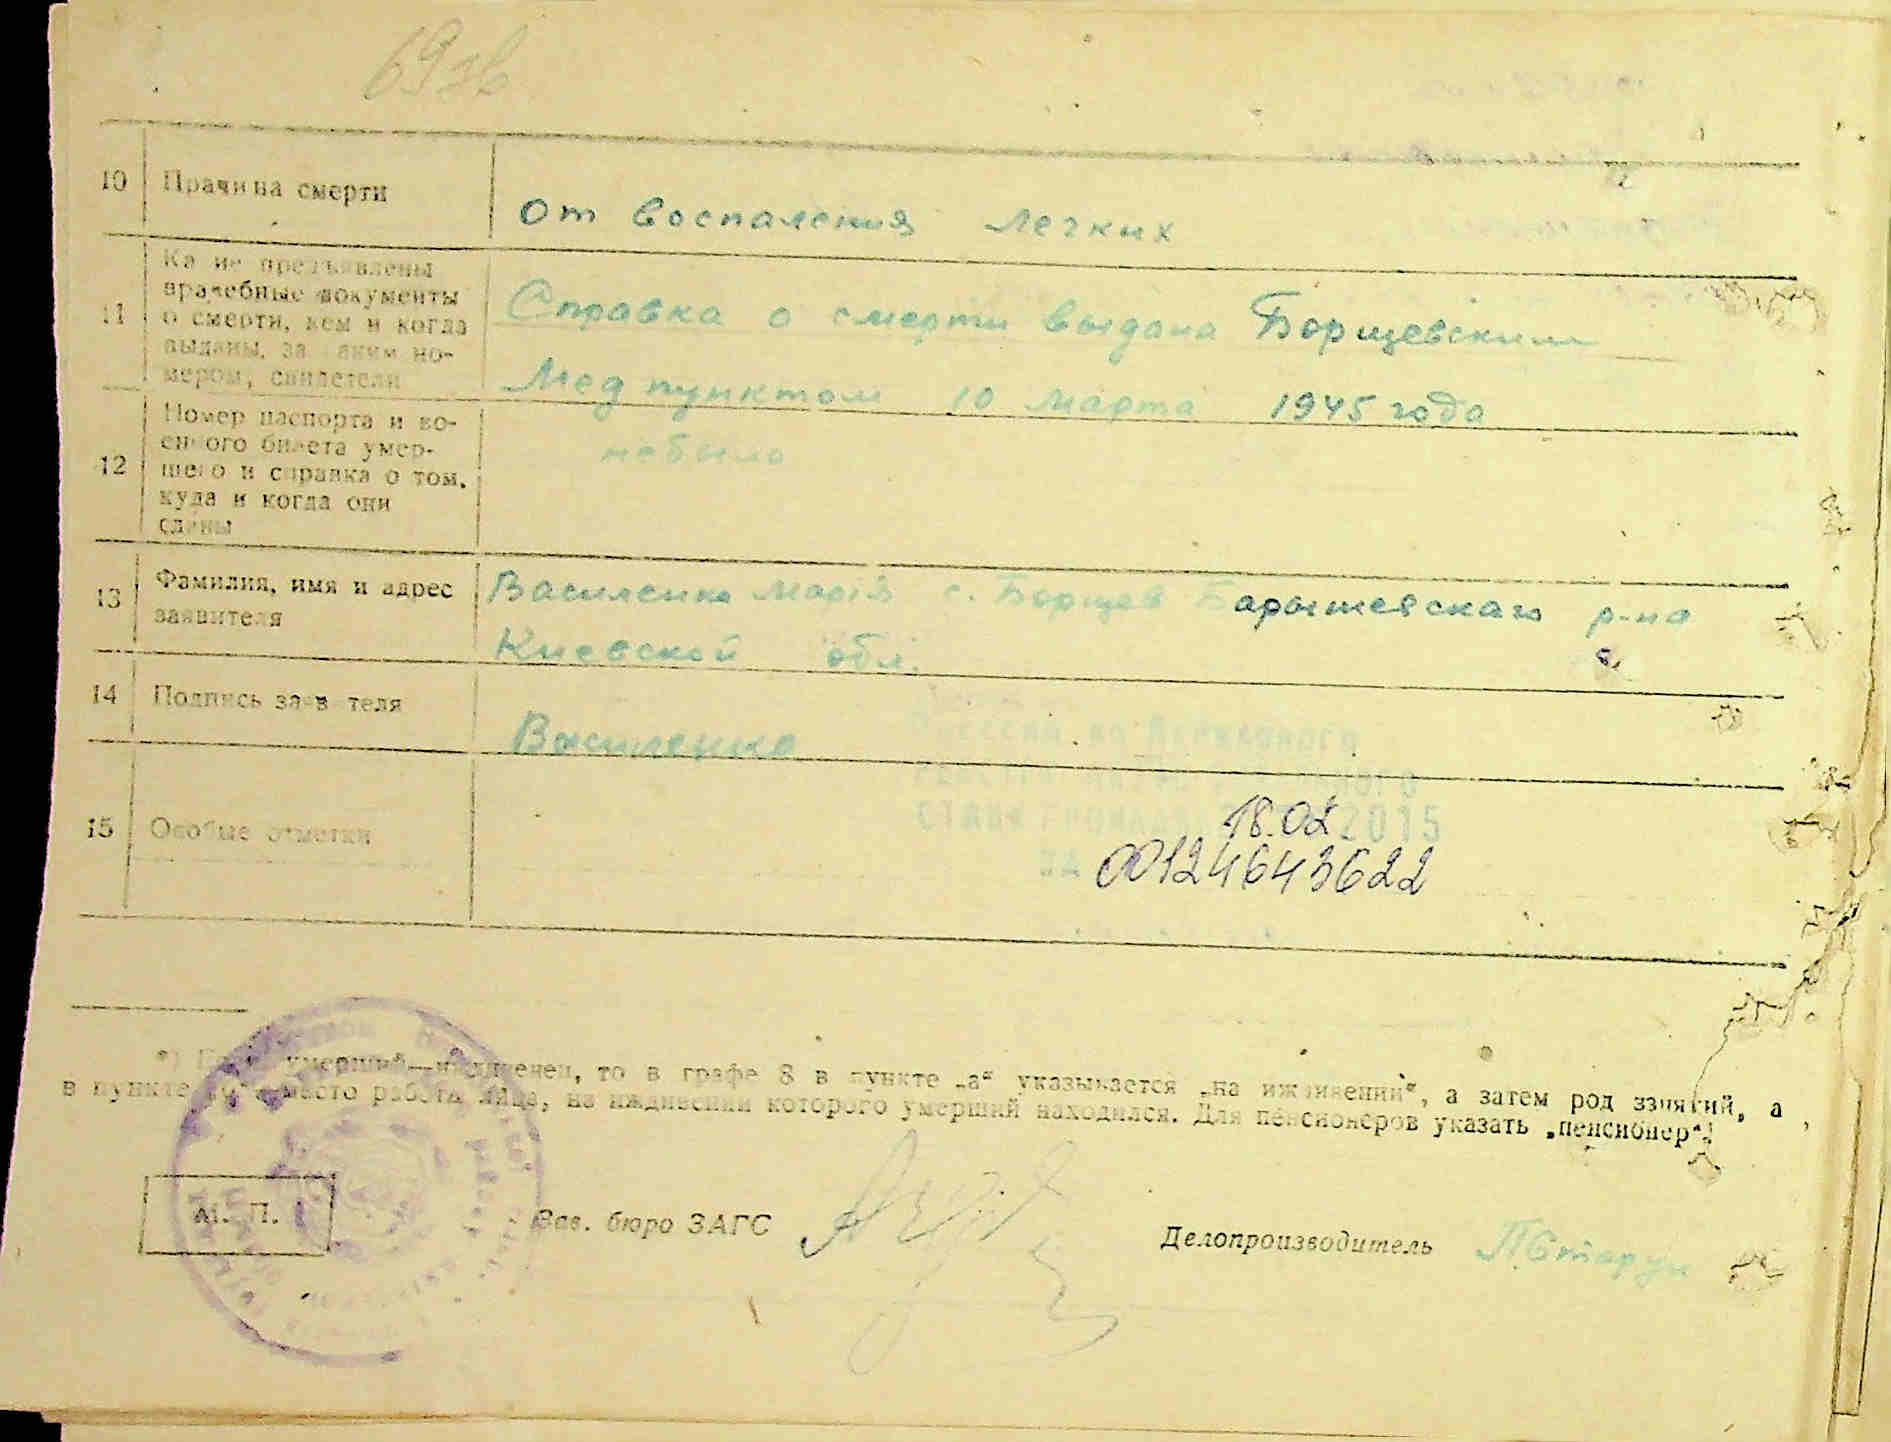 69зв
10 Причина смерти
От воспаления легких
11 Какие предъявлены
врачебные документы
о смерти, кем и когда
выданы, за каким но-
мером, свидетели
Справка о смерти выдана Борщевским
Мед пунктом 10 марта 1945 года
12 Номер паспорта и во-
енного билета умер-
шего и справка о том,
куда и когда они
сданы
небыло
13 Фамилия, имя и адрес
заявителя
Василенко Марія с. Борщев Барышевскаго р-на
Киевской обл.
14 Подпись заявителя
Василенко
15 Особые отметки
Внесено до Державного
реєстру актів цивільного
стану громадян 18.02 2015
за 00124643622
*) Если умерший—иждивенец, то в графе 8 в пункте „а“ указывается „на иждивении“, а затем род занятий, а
в пункте место работы лица, на иждивении которого умерший находился. Для пенсионеров указать „пенсионер“.
М. П.
Зав. бюро ЗАГС
Делопроизводитель